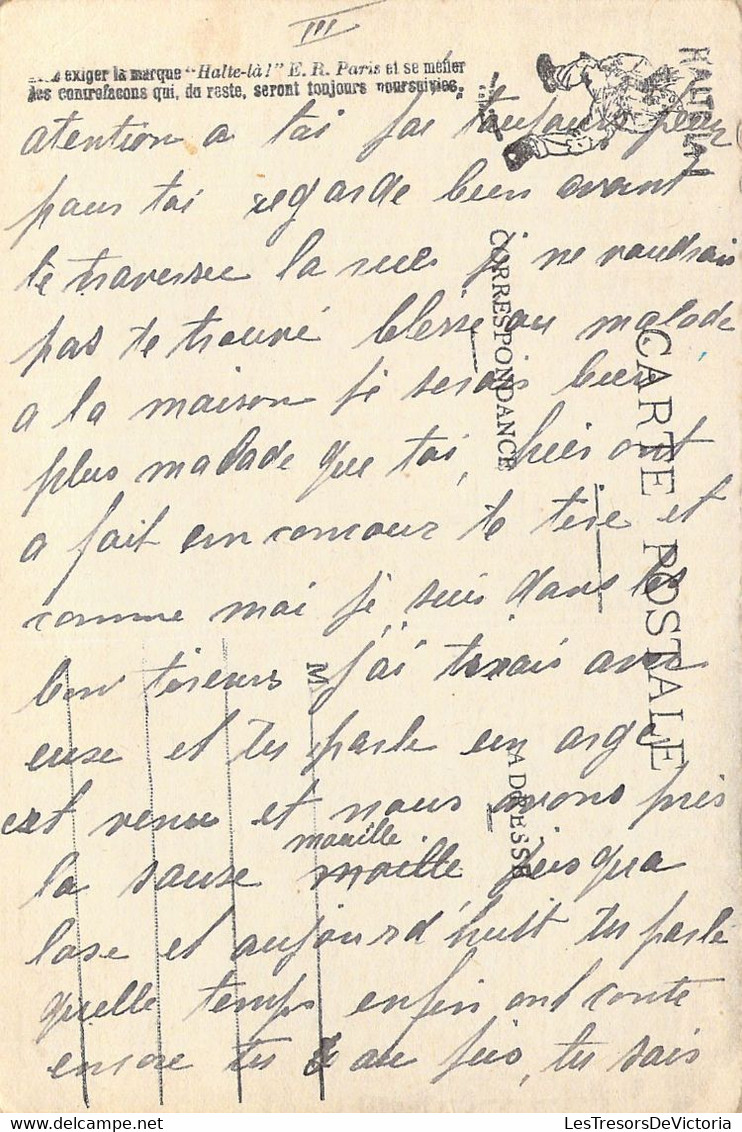 III
exiger la marque "Halte-là!" E. R. Paris et se méfier
des contrefaçons qui, du reste, seront toujours poursuivies.
HALTE-LÀ!
CARTE POSTALE
CORRESPONDANCE
ADRESSE
M
atention a toi jai toujour peur
pour toi regarde bien avant
te traversee la rues je ne voudrais
pas te trouvé blessé ou malade
a la maison je serais bien
plus malade que toi, hier ont
a fait un concour te tire et
comme moi je suis dans les
bon tireurs j'ai tirais avec
euse et tu parle un orge
est venu et nous avons pris
la sause mouille
moille jusqua
lose et aujourd'huit tu parle
quelle temps enfin ont conte
encore tu a au feis, tu sais
LesTresorsDeVictoria